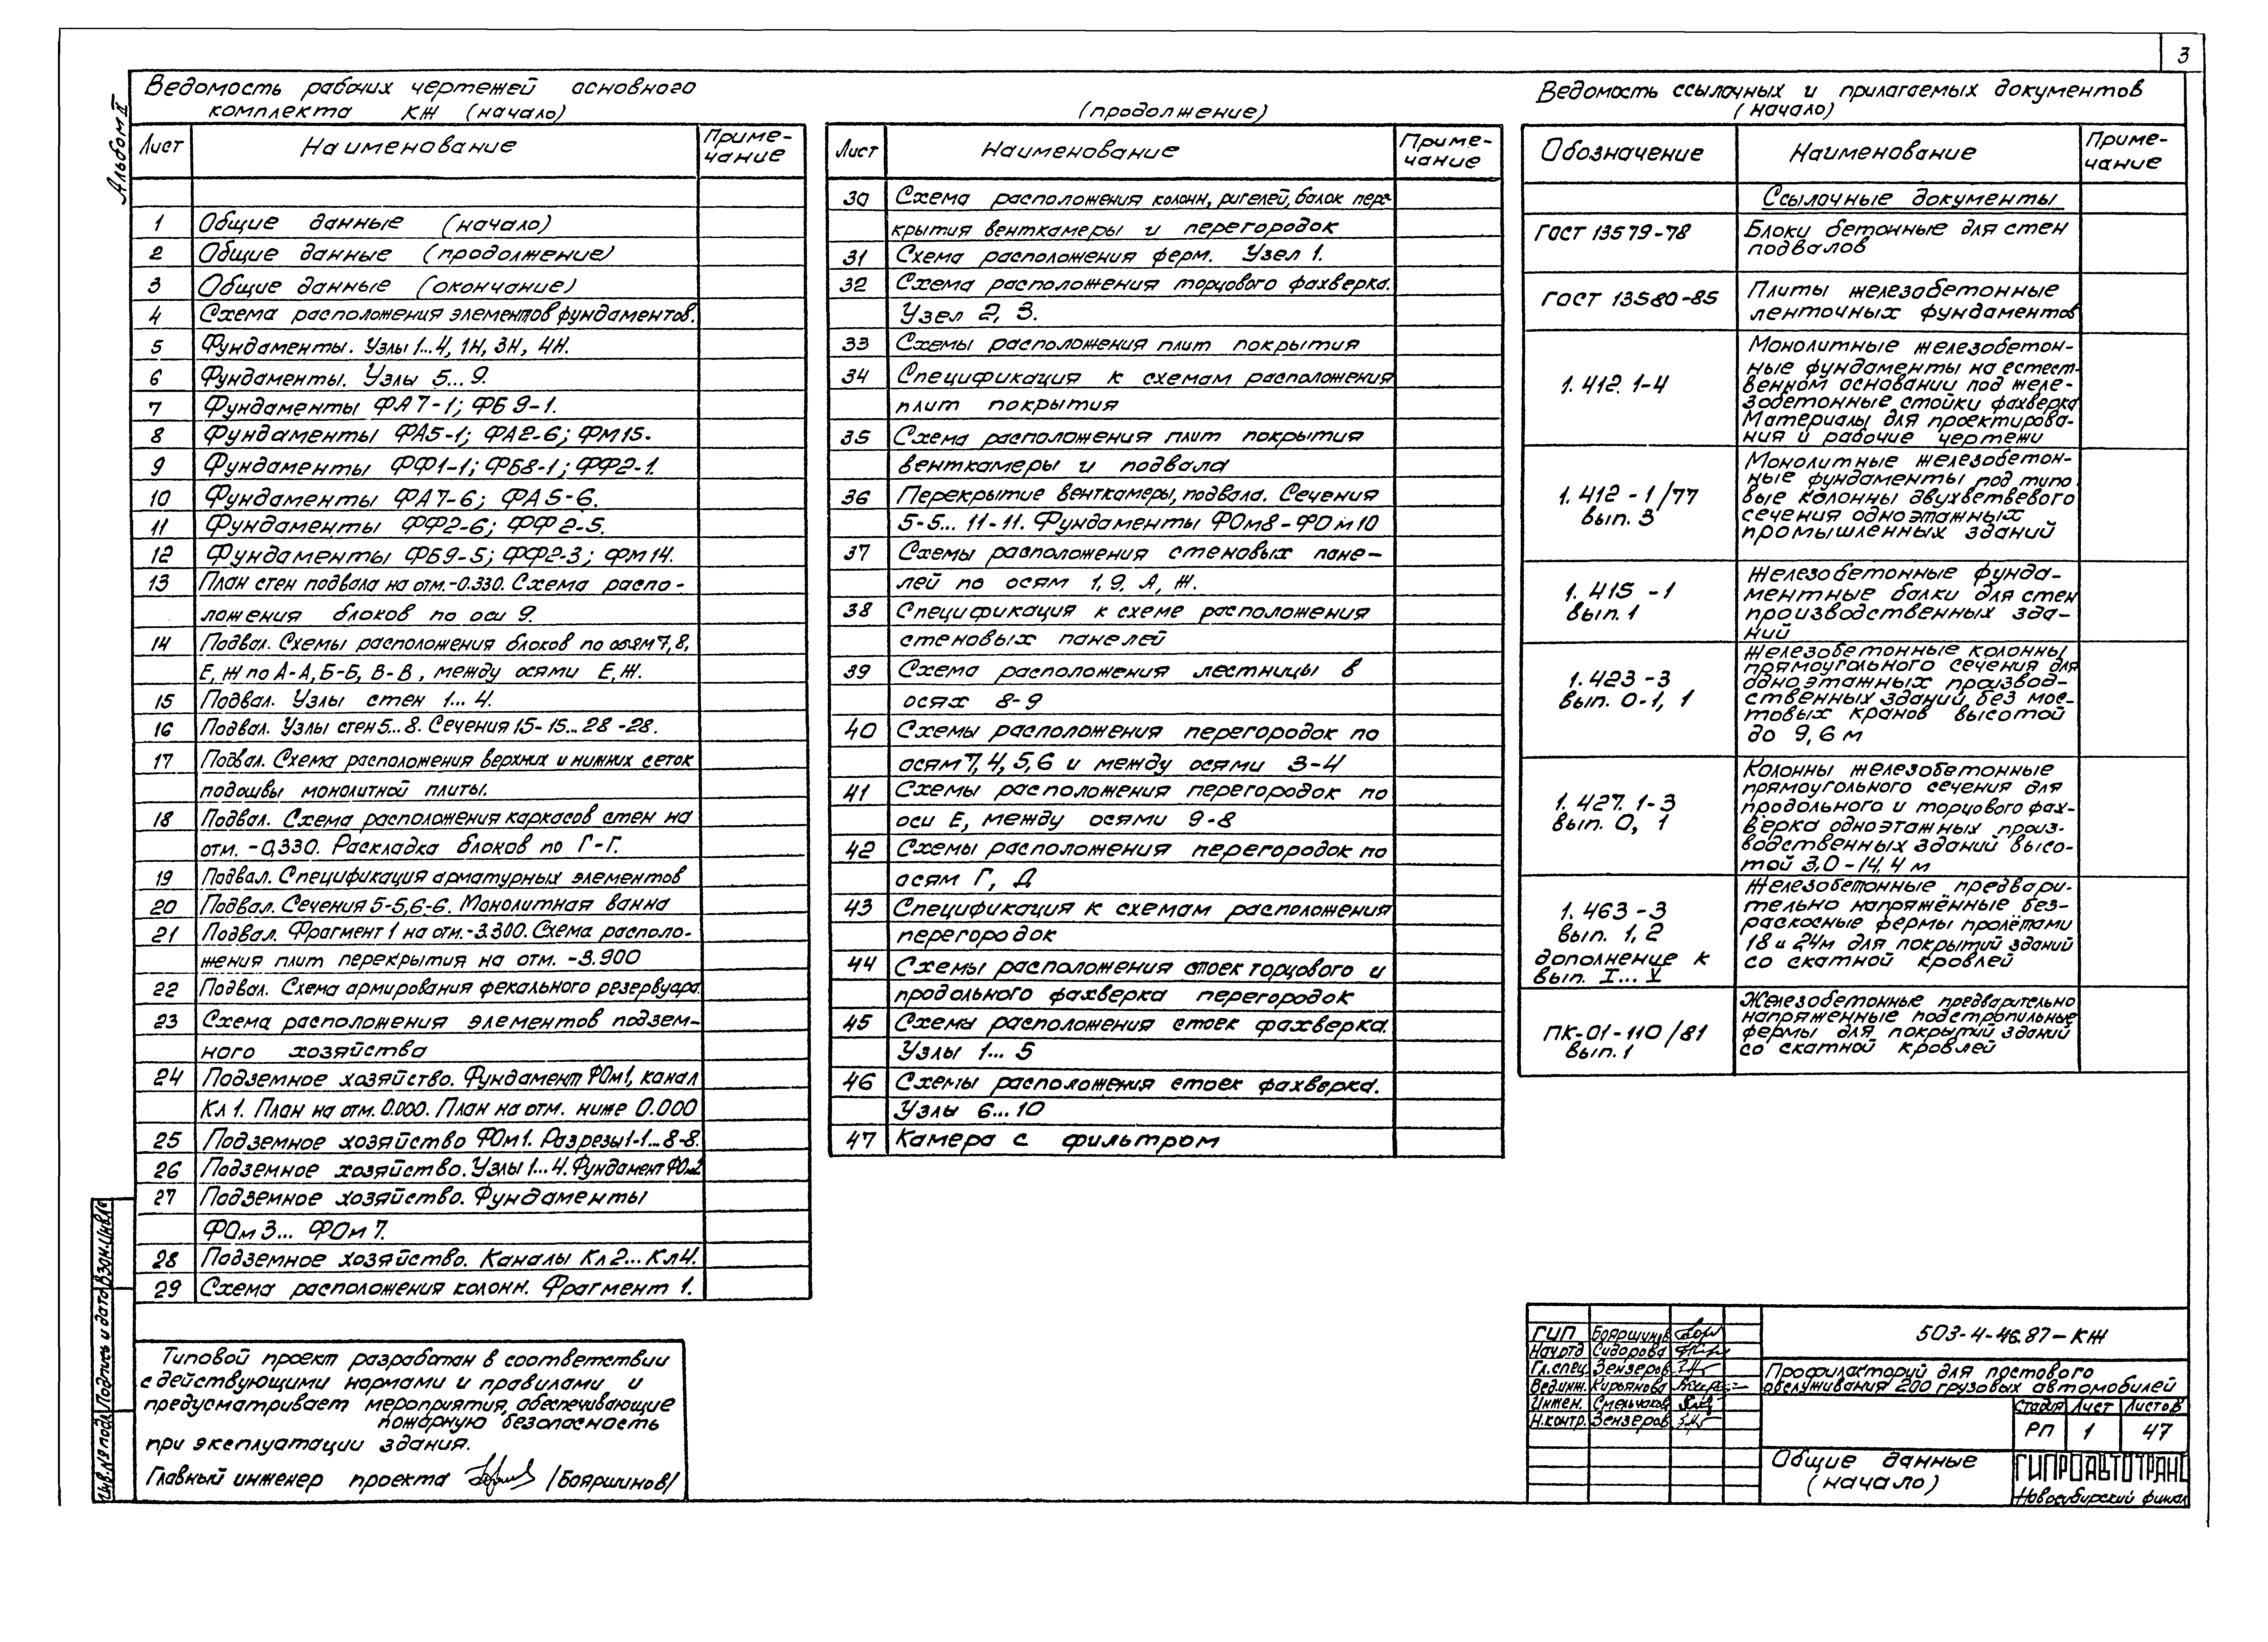 3
Альбом II
Ведомость рабочих чертежей основного
комплекта КЖ (начало)
Лист Наименование Приме-
чание
1 Общие данные (начало)
2 Общие данные (продолжение)
3 Общие данные (окончание)
4 Схема расположения элементов фундаментов.
5 Фундаменты. Узлы 1...4, 1Н, 3Н, 4Н.
6 Фундаменты. Узлы 5...9.
7 Фундаменты ФА7-1; ФБ9-1.
8 Фундаменты ФА5-1; ФА2-6; ФМ15.
9 Фундаменты ФФ1-1; ФБ8-1; ФФ2-1.
10 Фундаменты ФА7-6; ФА5-6.
11 Фундаменты ФФ2-6; ФФ2-5.
12 Фундаменты ФБ9-5; ФФ2-3; ФМ14.
13 План стен подвала на отм.-0.330. Схема распо-
ложения блоков по оси 9.
14 Подвал. Схемы расположения блоков по осям 7, 8,
Е, Ж по А-А, Б-Б, В-В, между осями Е, Ж.
15 Подвал. Узлы стен 1...4.
16 Подвал. Узлы стен 5...8. Сечения 15-15...28-28.
17 Подвал. Схема расположения верхних и нижних сеток
подошвы монолитной плиты.
18 Подвал. Схема расположения каркасов стен на
отм. -0,330. Раскладка блоков по Г-Г.
19 Подвал. Спецификация арматурных элементов
20 Подвал. Сечения 5-5, 6-6. Монолитная ванна
21 Подвал. Фрагмент 1 на отм.-3.300. Схема располо-
жения плит перекрытия на отм. -3.900
22 Подвал. Схема армирования фекального резервуара.
23 Схема расположения элементов подзем-
ного хозяйства
24 Подземное хозяйство. Фундамент ФОм1, канал
Кл 1. План на отм. 0.000. План на отм. ниже 0.000
25 Подземное хозяйство ФОм1. Разрезы 1-1...8-8.
26 Подземное хозяйство. Узлы 1...4. Фундамент ФОм2
27 Подземное хозяйство. Фундаменты
ФОм 3... ФОм 7.
28 Подземное хозяйство. Каналы Кл 2... Кл 4.
29 Схема расположения колонн. Фрагмент 1.
(продолжение)
Лист Наименование Приме-
чание
30 Схема расположения колонн, ригелей, балок пере-
крытия венткамеры и перегородок
31 Схема расположения ферм. Узел 1.
32 Схема расположения торцового фахверка.
Узел 2, 3.
33 Схемы расположения плит покрытия
34 Спецификация к схемам расположения
плит покрытия
35 Схема расположения плит покрытия
венткамеры и подвала
36 Перекрытие венткамеры, подвала. Сечения
5-5... 11-11. Фундаменты ФОм8-ФОм10
37 Схемы расположения стеновых пане-
лей по осям 1, 9, А, Ж.
38 Спецификация к схеме расположения
стеновых панелей
39 Схема расположения лестницы в
осях 8-9
40 Схемы расположения перегородок по
осям 7, 4, 5, 6 и между осями 3-4
41 Схемы расположения перегородок по
оси Е, между осями 9-8
42 Схемы расположения перегородок по
осям Г, Д
43 Спецификация к схемам расположения
перегородок
44 Схемы расположения стоек торцового и
продольного фахверка перегородок
45 Схемы расположения стоек фахверка.
Узлы 1... 5
46 Схемы расположения стоек фахверка.
Узлы 6...10
47 Камера с фильтром
Ведомость ссылочных и прилагаемых документов
(начало)
Обозначение Наименование Приме-
чание
Ссылочные документы
ГОСТ 13579-78 Блоки бетонные для стен
подвалов
ГОСТ 13580-85 Плиты железобетонные
ленточных фундаментов
1.412.1-4 Монолитные железобетон-
ные фундаменты на естест-
венном основании под желе-
зобетонные стойки фахверка
Материалы для проектирова-
ния и рабочие чертежи
1.412-1/77
вып. 3
Монолитные железобетон-
ные фундаменты под типо
вые колонны двухветвевого
сечения одноэтажных
промышленных зданий
1.415-1
вып. 1
Железобетонные фунда-
ментные балки для стен
производственных зда-
ний
1.423-3
вып. 0-1, 1
Железобетонные колонны
прямоугольного сечения для
одноэтажных производ-
ственных зданий без мос-
товых кранов высотой
до 9,6 м
1.427.1-3
вып. 0, 1
Колонны железобетонные
прямоугольного сечения для
продольного и торцового фах-
верка одноэтажных произ-
водственных зданий высо-
той 3,0-14,4 м
1.463-3
вып. 1, 2
дополнение к
вып. I... V
Железобетонные предвари-
тельно напряжённые без-
раскосные фермы пролётами
18 и 24м для покрытий зданий
со скатной кровлей
ПК-01-110/81
вып. 1
Железобетонные предварительно
напряженные подстропильные
фермы для покрытий зданий
со скатной кровлей
Типовой проект разработан в соответствии
с действующими нормами и правилами и
предусматривает мероприятия, обеспечивающие
пожарную безопасность
при эксплуатации здания.
Главный инженер проекта /Бояршинов/
Инв.№ подл. Подпись и дата Взам.инв.№
ГИП Бояршинов
Нач.отд Сидорова
Гл.спец. Зензеров
Вед.инж. Кирьянова
Инжен. Смельчаков
Н.контр. Зензеров
503-4-46.87-КЖ
Профилакторий для постового
обслуживания 200 грузовых автомобилей
Стадия Лист Листов
РП 1 47
Общие данные
(начало)
ГИПРОАВТОТРАНС
Новосибирский филиал